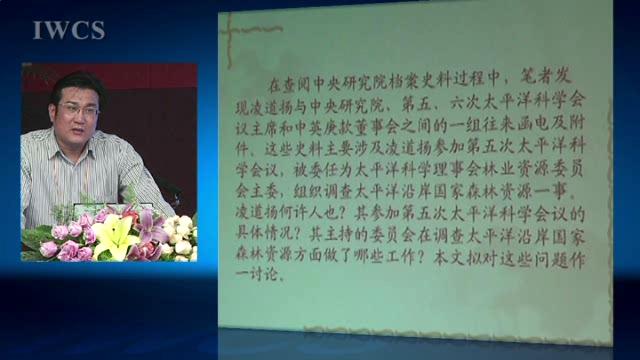 IWCS
在查阅中央研究院档案史料过程中，笔者发
现凌道扬与中央研究院、第五、六次太平洋科学会
议主席和中英庚款董事会之间的一组往来函电及附
件。这些史料主要涉及凌道扬参加第五次太平洋科
学会议，被委任为太平洋科学理事会林业资源委员
会主委，组织调查太平洋沿岸国家森林资源一事。
凌道扬何许人也？其参加第五次太平洋科学会议的
具体情况？其主持的委员会在调查太平洋沿岸国家
森林资源方面做了哪些工作？本文拟对这些问题作
一讨论。